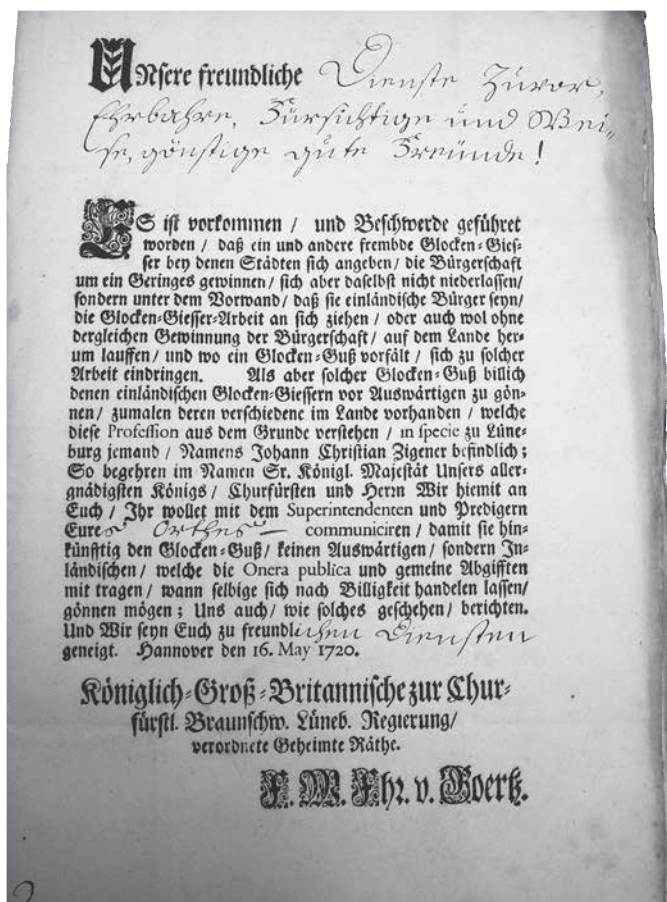 UNsere freundliche Dienste Zuvor,
Ehrbahre, Fürsichtige und Wei-
se, günstige gute Freunde!
ES ist vorkommen / und Beschwerde geführet
worden / daß ein und andere frembde Glocken-Gies-
ser bey denen Städten sich angeben / die Bürgerschafft
um ein Geringes gewinnen / sich aber daselbst nicht niederlassen /
sondern unter dem Vorwand / daß sie einländische Bürger seyn /
die Glocken-Giesser-Arbeit an sich ziehen / oder auch wol ohne
dergleichen Gewinnung der Bürgerschafft / auf dem Lande her-
um lauffen / und wo ein Glocken-Guß vorfält / sich zu solcher
Arbeit eindringen. Als aber solcher Glocken-Guß billich
denen einländischen Glocken-Giessern vor Auswärtigen zu gön-
nen / zumalen deren verschiedene im Lande vorhanden / welche
diese Profession aus dem Grunde verstehen / in specie zu Lüne-
burg jemand / Namens Johann Christian Zigener befindlich;
So begehren im Namen Sr. Königl. Majestät Unsers aller-
gnädigsten Königs / Churfürsten und Herrn Wir hiemit an
Euch / Ihr wollet mit dem Superintendenten und Predigern
Eures Orthes communiciren / damit sie hin-
künfftig den Glocken-Guß / keinen Auswärtigen / sondern In-
ländischen / welche die Onera publica und gemeine Abgifften
mit tragen / wann selbige sich nach Billigkeit handelen lassen /
gönnen mögen; Uns auch / wie solches geschehen / berichten.
Und Wir seyn Euch zu freundlichen Diensten
geneigt. Hannover den 16. May 1720.
Königlich-Groß-Britannische zur Chur-
fürstl. Braunschw. Lüneb. Regierung /
verordnete Geheimte Räthe.
F. W. Fhr. v. Goertz.